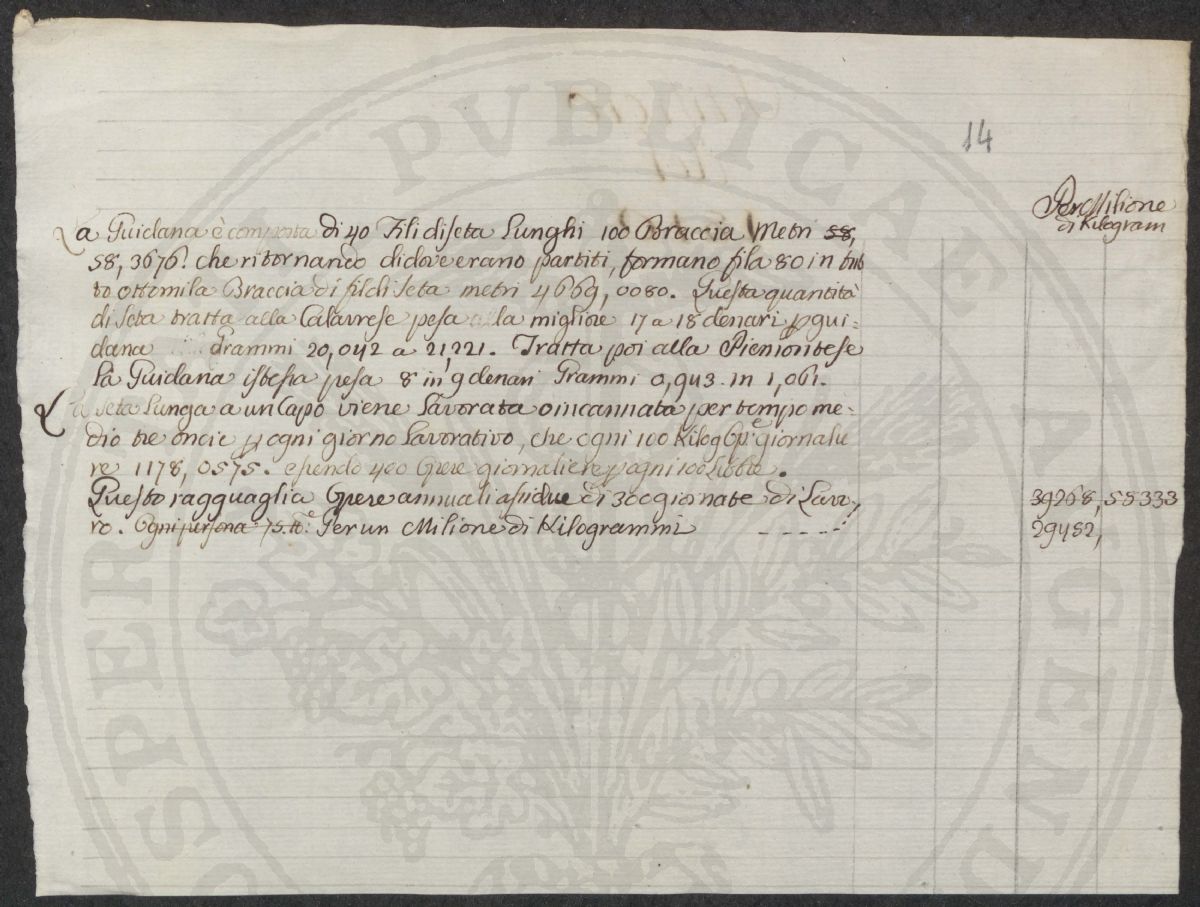 14
Per Milione
di Kilogram
La Guidana è composta di 40 Fili di Seta Lunghi 100 Braccia Metri 58,
58,3676. che ritornando di dove erano partiti, formano fila 80 in tut
to ottomila Braccia di fil di Seta metri 4669,0080. Questa quantità
di Seta tratta alla Calavrese pesa alla migliore 17 a 18 denari p gui=
dana Grammi 20,042 a 21,221. Tratta poi alla Piemontese
la Guidana istessa pesa 8 in 9 denari Grammi 0,943. in 1,061.
La Seta Lunga a un Capo viene Lavorata o incannata per tempo me=
dio tre oncie p ogni giorno Lavorativo, che ogni 100 Kilog giornalie
re 1178,0575. essendo 400 Opere giornaliere p ogni 100 Libbre.
Questo ragguaglia Opere annuali assidue di 300 giornate di Lavo, 39268,55333
ro. Ogni persona 75. Per un Milione di Kilogrammi ----- 29452,
PVBLICAE